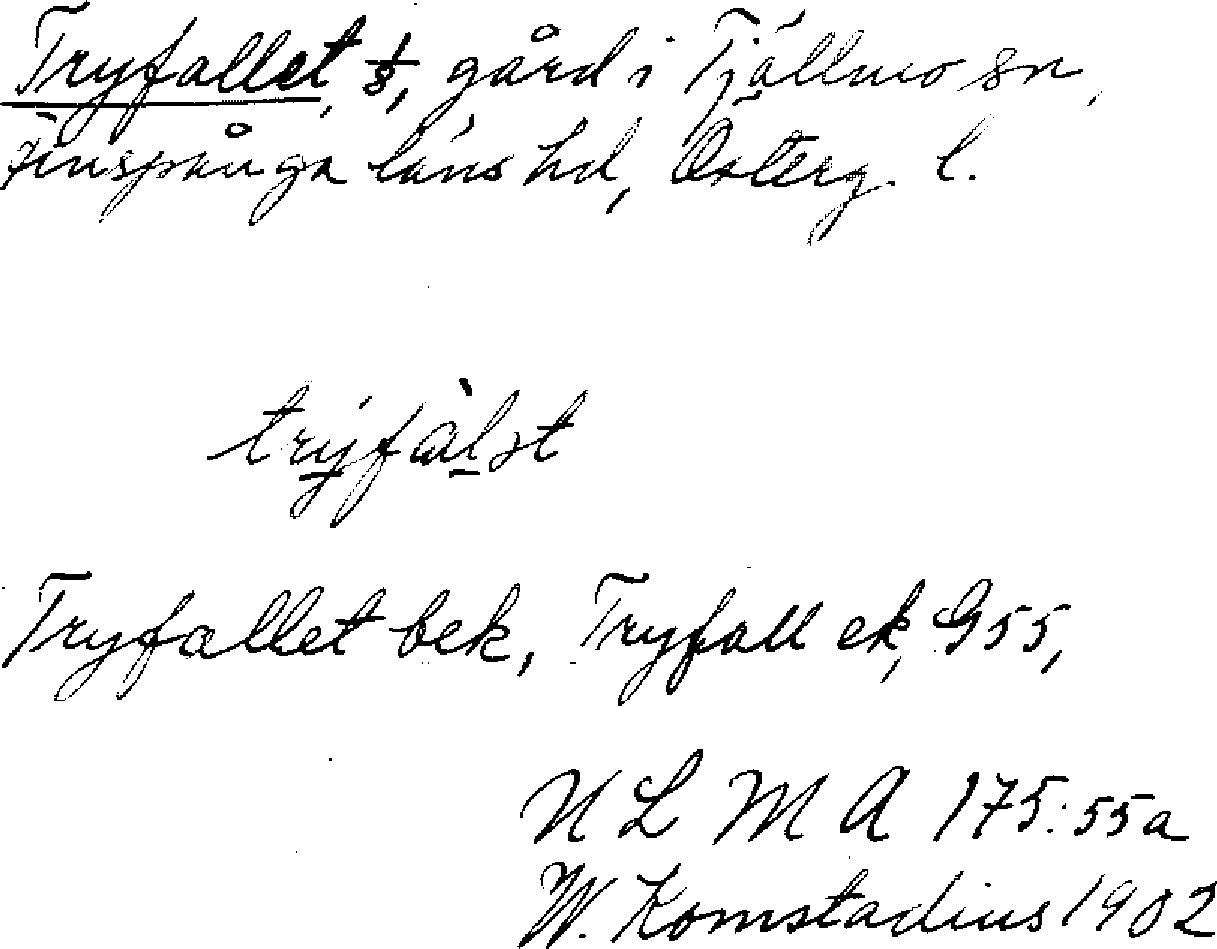 Tryfallet, 1/8, gård i Tjällmo sn,
Finspånga läns hd, Österg. l.
trýfàlst
Tryfallet bek, Tryfall ek, G55,
N L M A 175:55a
W. Komstadius 1902